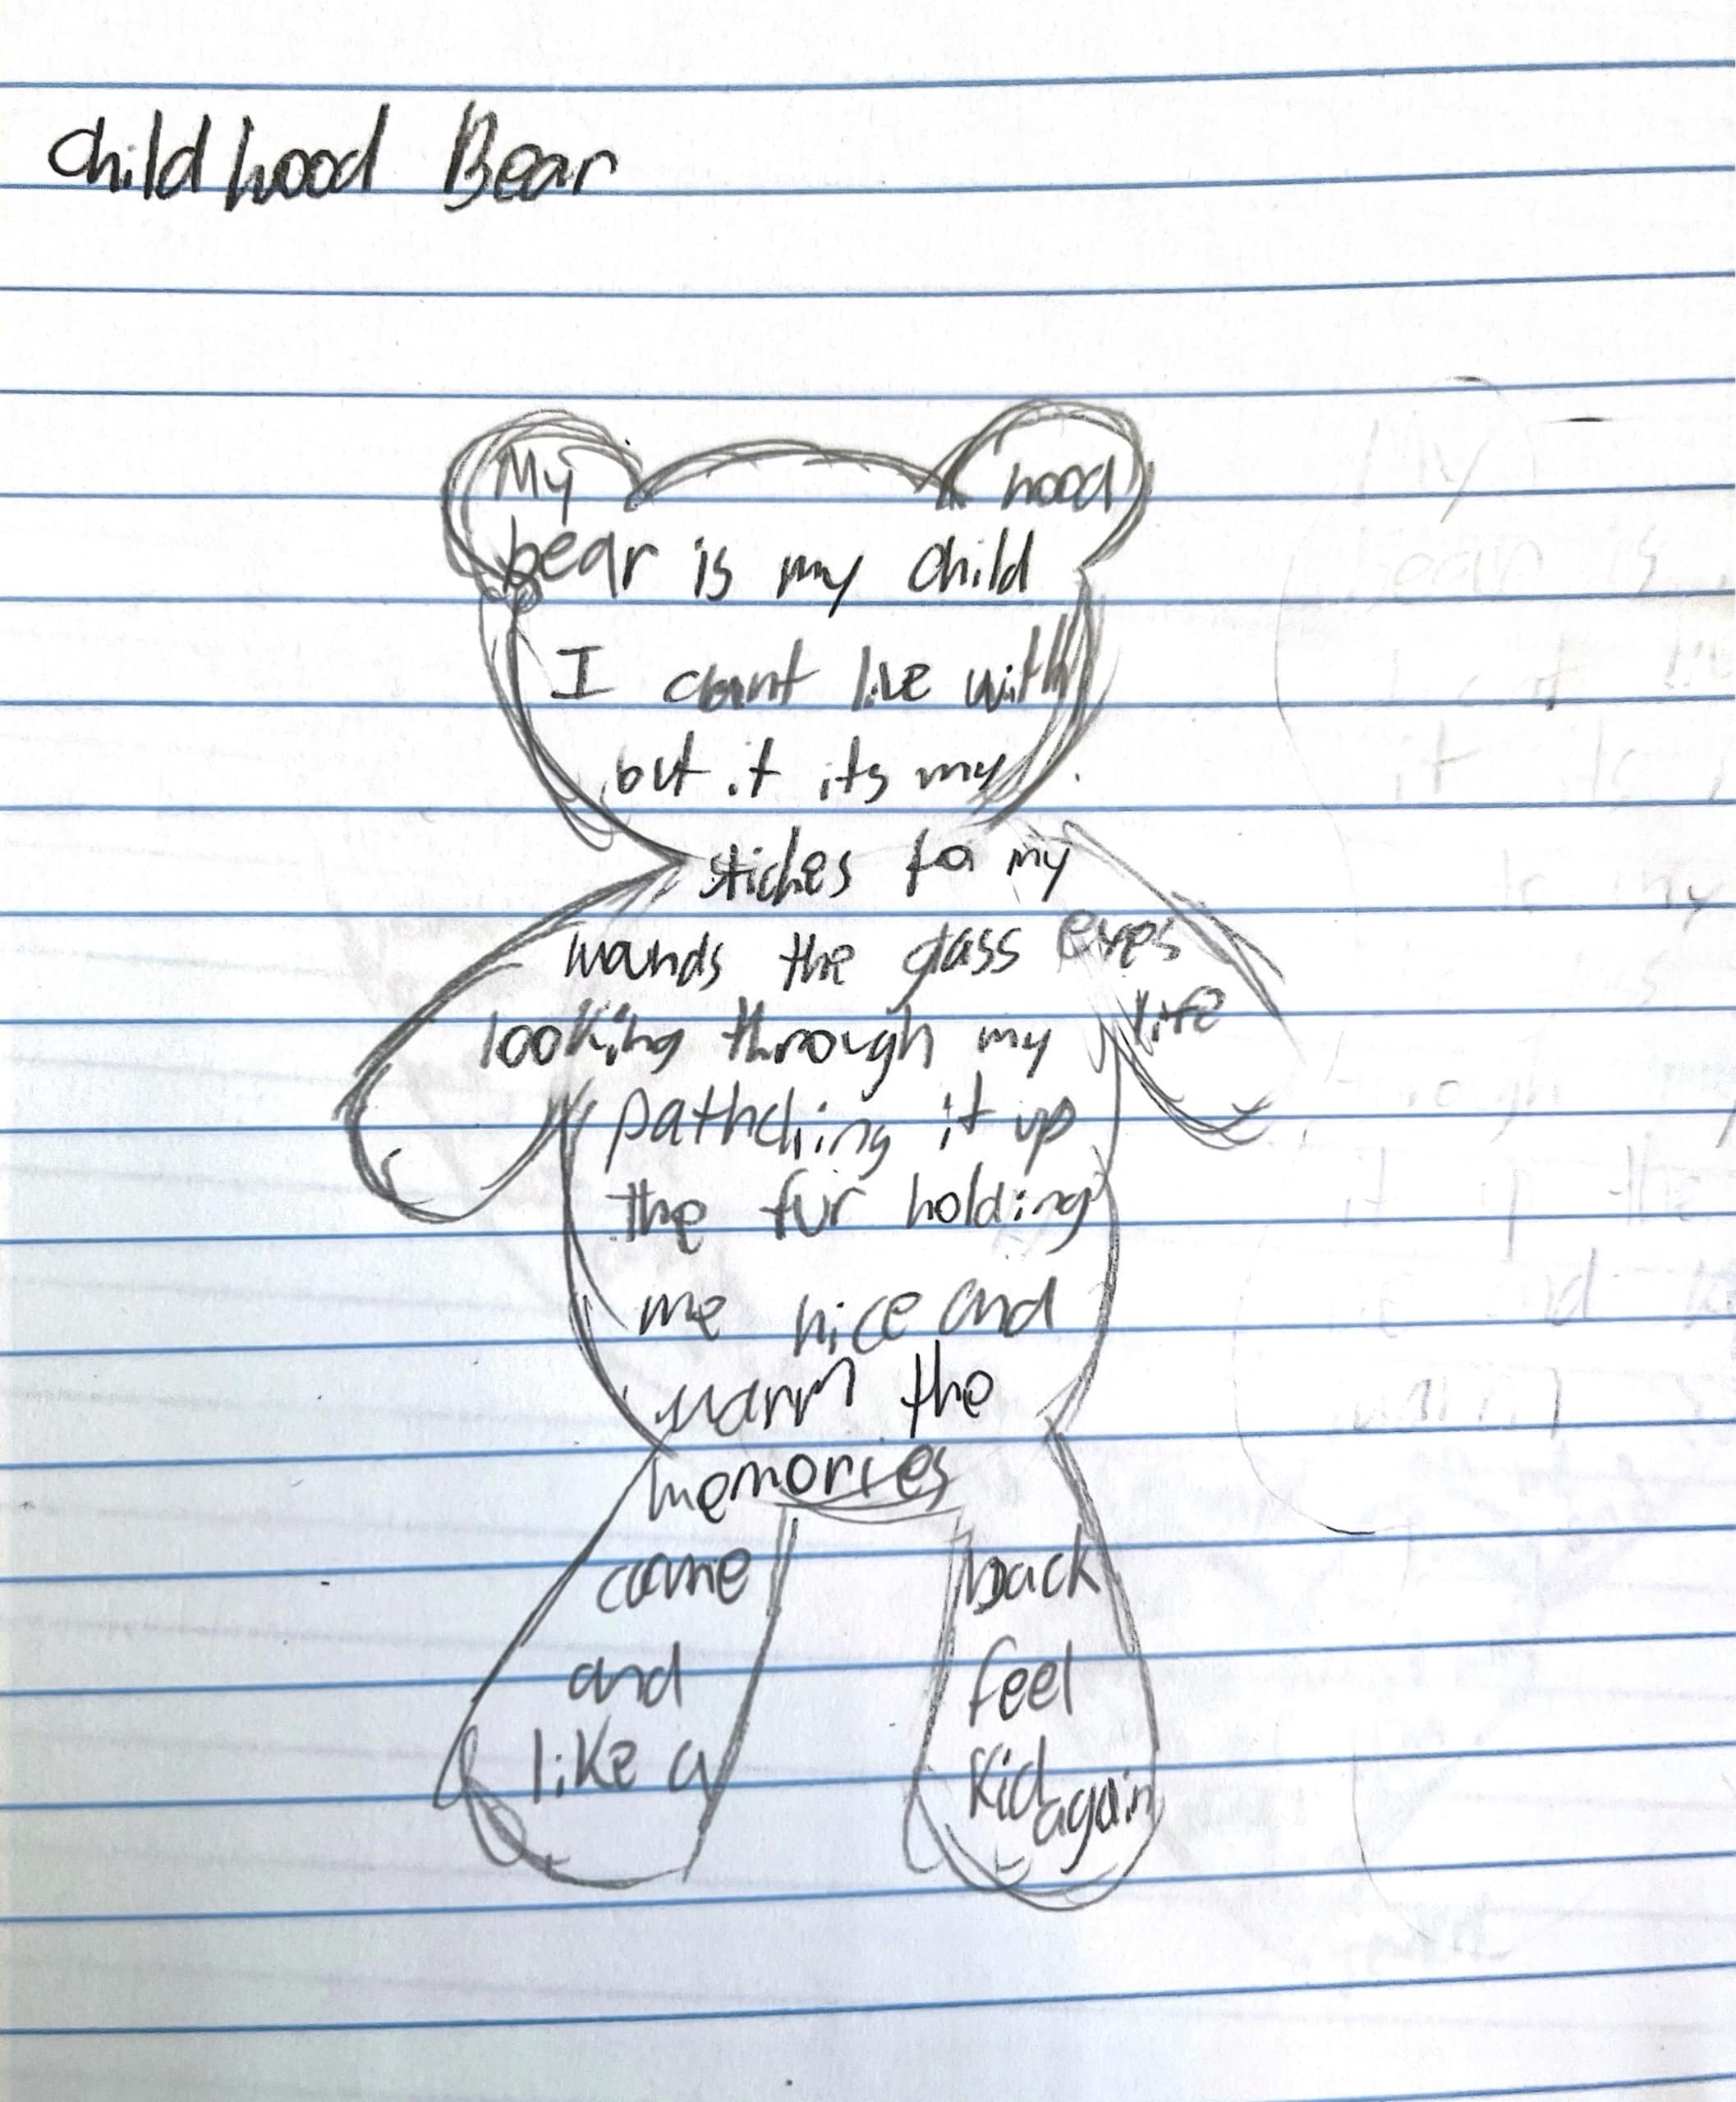 Childhood Bear
My hood
bear is my child
I cant live with
but it its my
stiches for my
wounds the glass eyes
looking through my life
pathching it up
the fur holding
me nice and
warm the
memories
come back
and feel
like a kid again